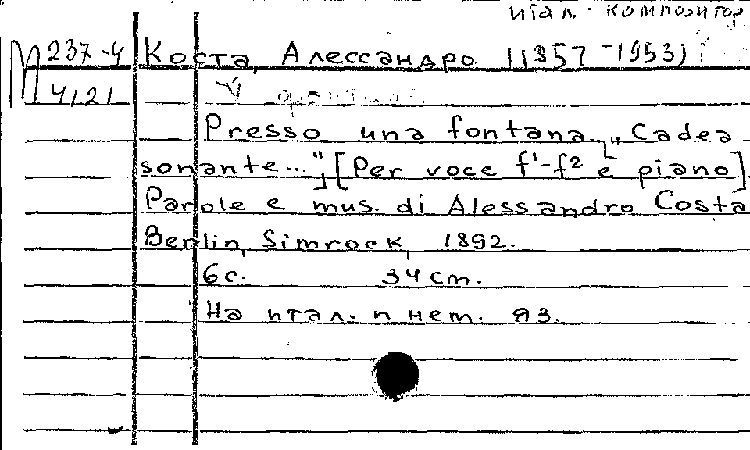 итал. композитор
М 237-4 Коста, Алессандро (1857-1953)
4121
Presso una fontana. ["Cadea
sonante..."] [Per voce f¹-f² e piano]
Parole e mus. di Alessandro Costa
Berlin, Simrock, 1892.
6 с. 34 cm.
На итал. и нем. яз.